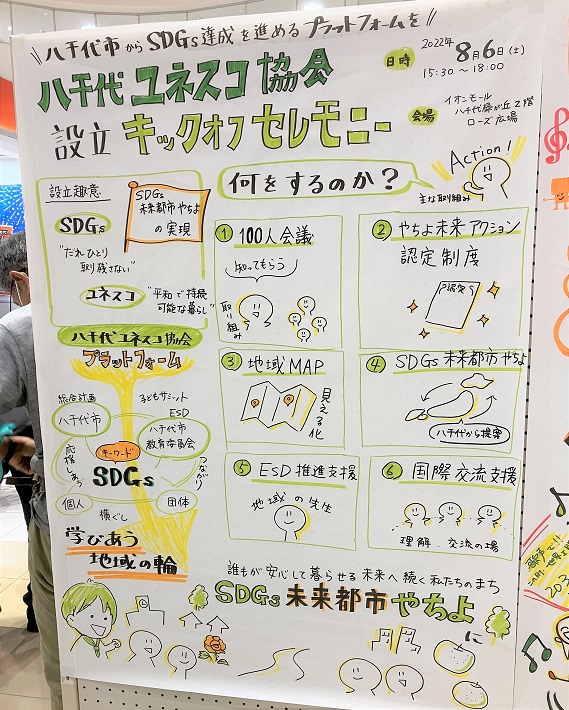 八千代市からSDGs達成を進めるプラットフォームを
八千代ユネスコ協会
設立 キックオフセレモニー
日時 2022年8月6日(土)
15:30〜18:00
会場 イオンモール
八千代緑が丘2階
ローズ広場
設立趣意
SDGs
"だれひとり
取り残さない"
SDGs
未来都市やちよ
の実現
ユネスコ
"平和で持続
可能な暮らし"
八千代ユネスコ協会
プラットフォーム
総合計画
八千代市
子どもサミット
ESD
八千代市
教育委員会
キーワード
SDGs
つながり
個人
横ぐし
団体
学びあう
地域の輪
何をするのか?
Action!
主な取り組み
① 100人会議
知ってもらう
取り組み
② やちよ未来アクション
認定制度
認定
③ 地域MAP
見える化
④ SDGs未来都市やちよ
八千代から提案
⑤ ESD推進支援
地域の先生
⑥ 国際交流支援
理解・交流の場
誰もが安心して暮らせる未来へ続く私たちのまち
SDGs未来都市やちよに